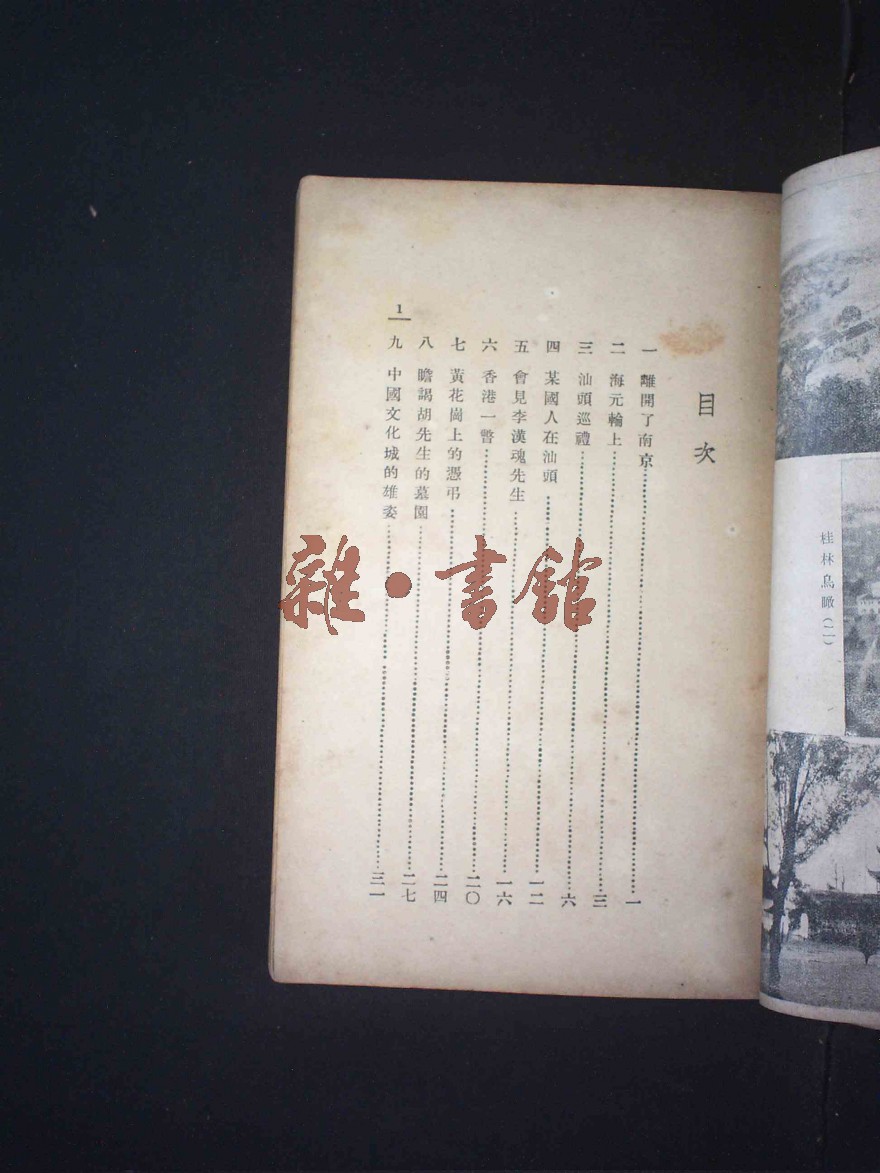 目次
一 離開了南京……一
二 海元輪上……三
三 汕頭巡禮……六
四 某國人在汕頭……一二
五 會見李漢魂先生……一六
六 香港一瞥……二〇
七 黃花崗上的憑弔……二四
八 瞻謁胡先生的墓園……二七
九 中國文化城的雄姿……三一
1
桂林鳥瞰(二)
雜·書館